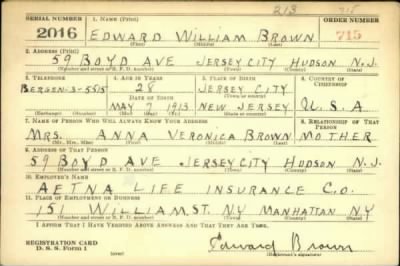 213
SERIAL NUMBER 1. NAME (Print) ORDER NUMBER
2016 EDWARD WILLIAM BROWN 715
(First) (Middle) (Last)
2. ADDRESS (Print)
59 BOYD AVE JERSEY CITY HUDSON N.J.
(Number and street or R. F. D. number) (Town) (County) (State)
3. TELEPHONE 4. AGE IN YEARS 5. PLACE OF BIRTH 6. COUNTRY OF CITIZENSHIP
BERGEN-3-5515 28 JERSEY CITY
DATE OF BIRTH (Town or county)
MAY 7 1913 NEW JERSEY U.S.A
(Exchange) (Number) (Mo.) (Day) (Yr.) (State or country)
7. NAME OF PERSON WHO WILL ALWAYS KNOW YOUR ADDRESS 8. RELATIONSHIP OF THAT PERSON
MRS. ANNA VERONICA BROWN MOTHER
(Mr., Mrs., Miss) (First) (Middle) (Last)
9. ADDRESS OF THAT PERSON
59 BOYD AVE JERSEY CITY HUDSON N.J.
(Number and street or R. F. D. number) (Town) (County) (State)
10. EMPLOYER'S NAME
AETNA LIFE INSURANCE C.O.
11. PLACE OF EMPLOYMENT OR BUSINESS
151 WILLIAM ST. N.Y MANHATTAN N.Y
(Number and street or R. F. D. number) (Town) (County) (State)
I AFFIRM THAT I HAVE VERIFIED ABOVE ANSWERS AND THAT THEY ARE TRUE.
REGISTRATION CARD
D. S. S. Form 1 Edward Brown
(Registrant's signature)